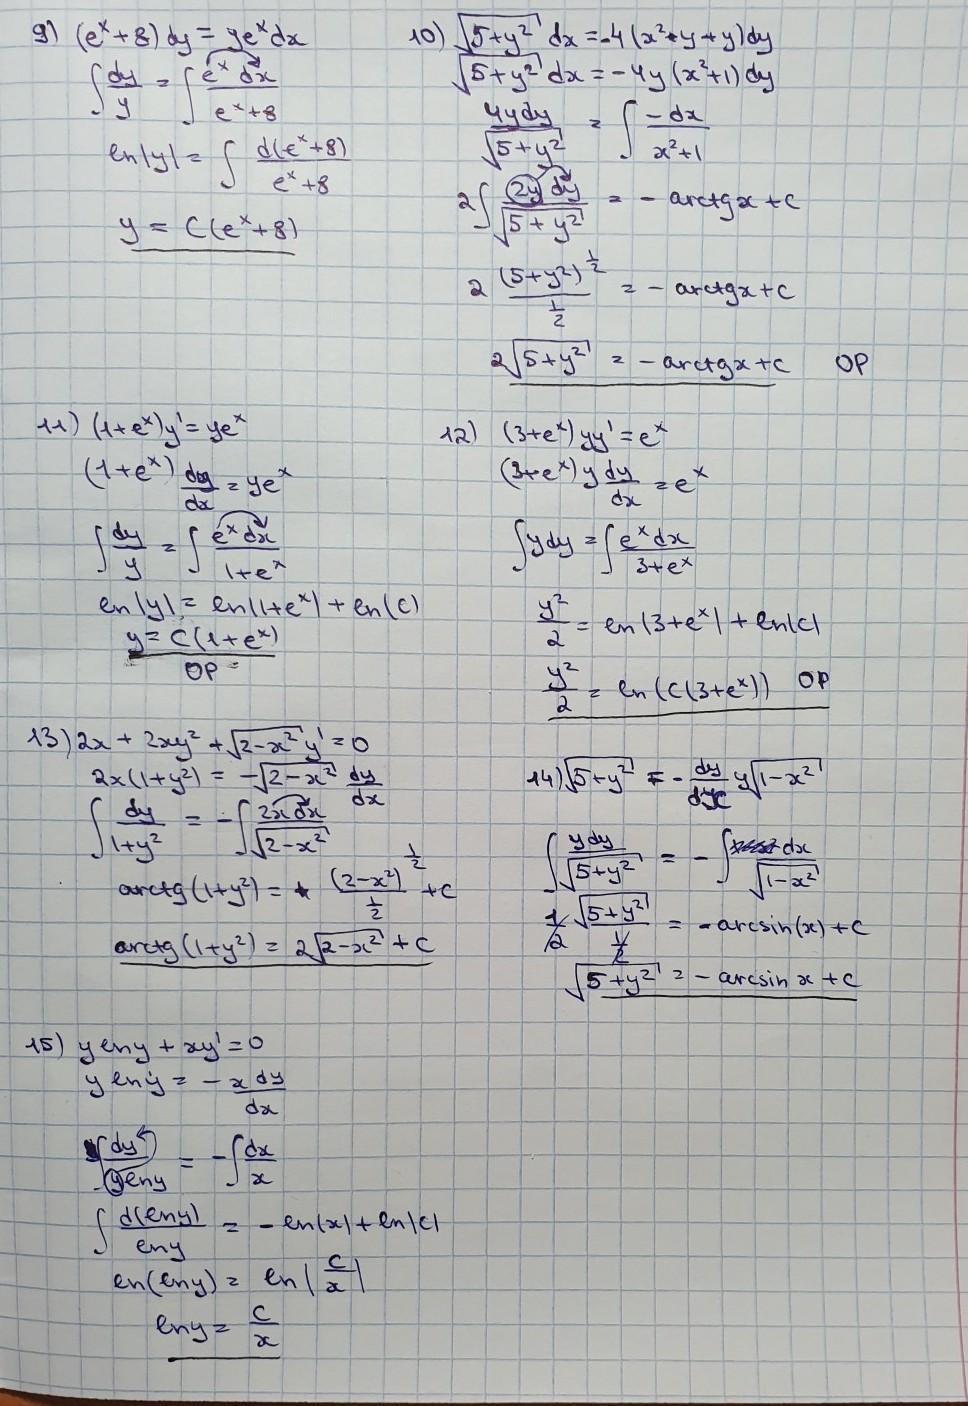 9) (eˣ+8)dy = yeˣdx
∫dy/y = ∫eˣdx/(eˣ+8)
ln|y| = ∫d(eˣ+8)/(eˣ+8)
y = C(eˣ+8)
10) √(5+y²) dx = -4(x²·y+y)dy
√(5+y²) dx = -4y(x²+1)dy
4ydy/√(5+y²) = ∫-dx/(x²+1)
2∫2ydy/√(5+y²) = -arctgx+c
2 (5+y²)^(1/2)/(1/2) = -arctgx+c
2√(5+y²) = -arctgx+c OP
11) (1+eˣ)y' = yeˣ
(1+eˣ) dy/dx = yeˣ
∫dy/y = ∫eˣdx/(1+eˣ)
ln|y| = ln|1+eˣ| + ln(C)
y = C(1+eˣ)
OP
12) (3+eˣ)yy' = eˣ
(3+eˣ)y dy/dx = eˣ
∫ydy = ∫eˣdx/(3+eˣ)
y²/2 = ln|3+eˣ| + ln|c|
y²/2 = ln(C(3+eˣ)) OP
13) 2x + 2xy² + √(2-x²) y' = 0
2x(1+y²) = -√(2-x²) dy/dx
∫dy/(1+y²) = -∫2xdx/√(2-x²)
arctg(1+y²) = (2-x²)^(1/2)/(1/2) + c
arctg(1+y²) = 2√(2-x²) + c
14) √(5+y²) = -dy/dx y√(1-x²)
∫ydy/√(5+y²) = -∫dx/√(1-x²)
1/2 √(5+y²)/(1/2) = -arcsin(x)+c
√(5+y²) = -arcsinx+c
15) y lny + xy' = 0
y lny = -x dy/dx
∫dy/(ylny) = -∫dx/x
∫d(lny)/lny = -ln(x) + ln|c|
ln(lny) = ln|c/x|
lny = c/x